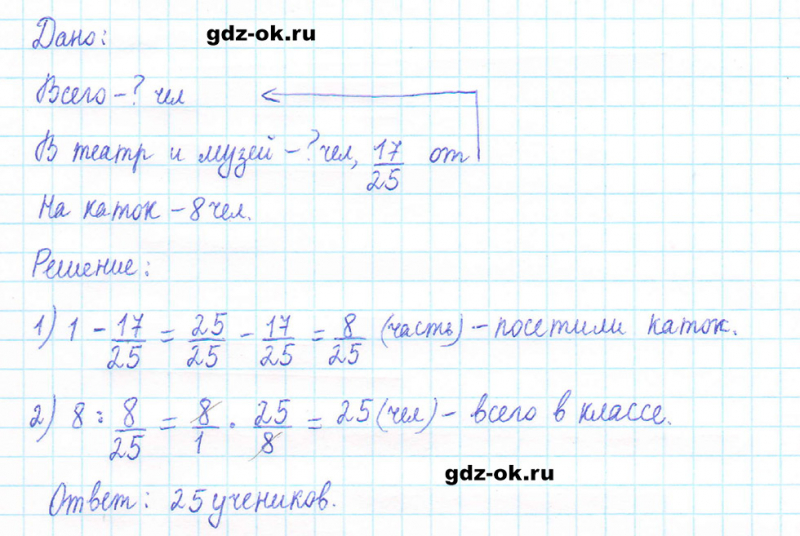 Дано: gdz-ok.ru
Всего – ? чел
В театр и музей – ? чел, 17/25 от
На каток – 8 чел.
Решение:
1) 1 - 17/25 = 25/25 - 17/25 = 8/25 (часть) – посетили каток.
2) 8 : 8/25 = 8/1 · 25/8 = 25 (чел) – всего в классе.
gdz-ok.ru
Ответ: 25 учеников.